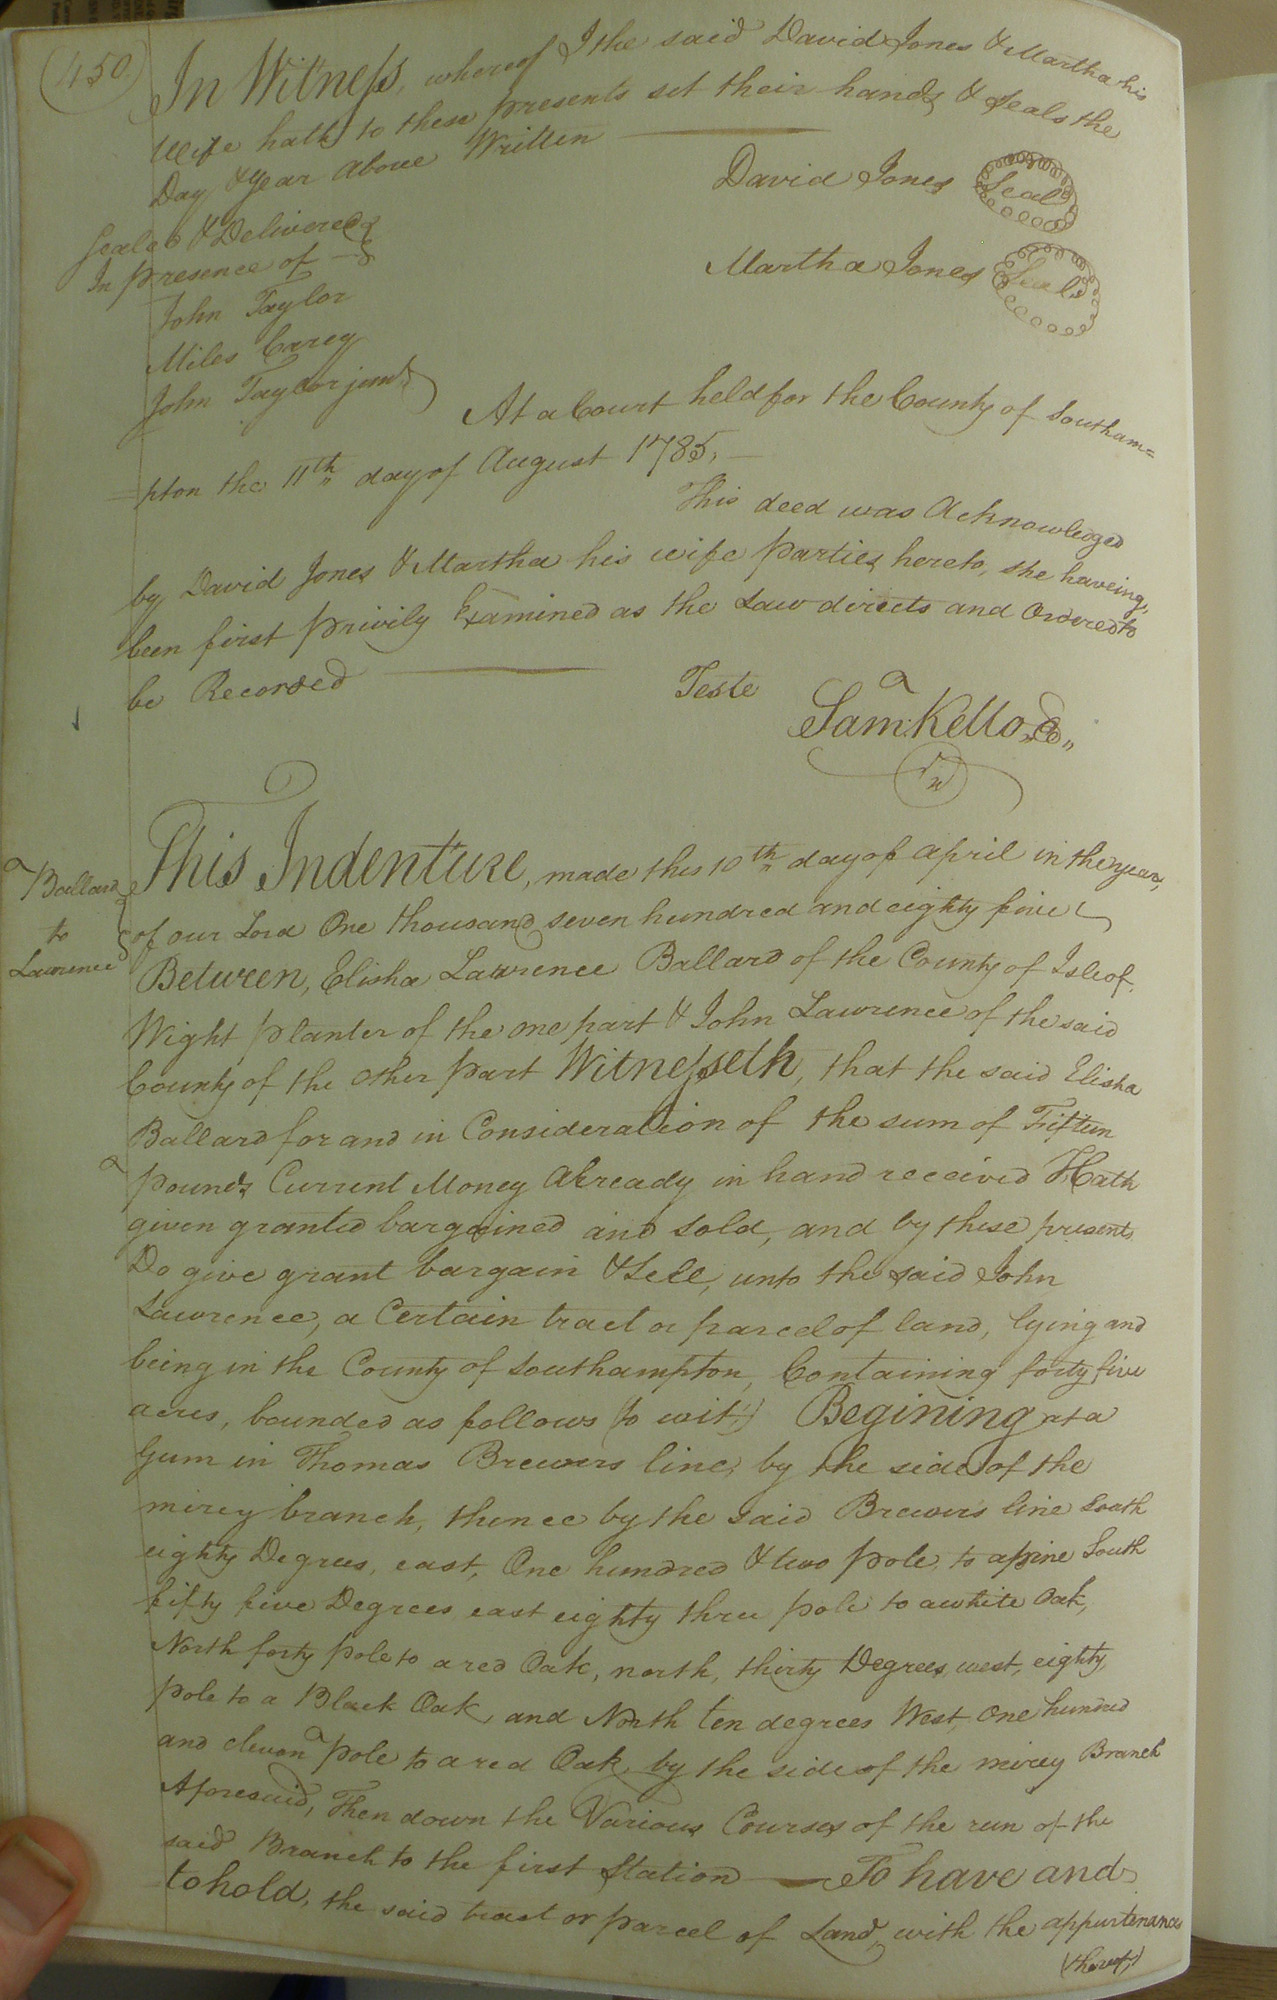 (450.)
In Witness, whereof I the said David Jones & Martha his
Wife hath to these presents set their hands & Seals the
Day & Year above Written
David Jones Seal
Sealed & Delivered
In presence of
Martha Jones Seal
John Taylor
Miles Carey
John Taylor junr
At a Court held for the County of Southam=
=pton the 11th day of August 1785,
This deed was Acknowledged
by David Jones & Martha his wife parties hereto, she haveing,
been first privily Examined as the Law directs and Ordered to
be Recorded
Teste
Sam: Kello
This Indenture, made this 10th day of april in the year,
Ballard
to
Lawrence
of our Lord One thousand seven hundred and eighty five
Between, Elisha Lawrence Ballard of the County of Isle of,
Wight planter of the one part & John Lawrence of the said
County of the other part Witnesseth, that the said Elisha
Ballard for and in Consideration of the sum of Fifteen
pounds Current Money Already in hand received Hath
given granted bargained and sold, and by these presents
Do give grant bargain & Sell, unto the said John
Lawrence, a Certain tract or parcel of land, lying and
being in the County of Southampton, Containing forty five
acres, bounded as follows (to wit:) Begining at a
Gum in Thomas Brewers line, by the side of the
mirey branch, thence by the said Brewers line South
eighty Degrees, east, One hundred & two pole, to a pine South
fifty five Degrees east eighty three pole to a white Oak,
North forty pole to a red Oak, north, thirty Degrees, west, eighty,
pole to a Black Oak, and North ten degrees West, One hundred
and eleven pole to a red Oak by the side of the mirey Branch
Aforesaid, Then down the Various Courses of the run of the
said Branch to the first Station — To have and
to hold, the said tract or parcel of Land, with the appurtenances
(thereof,)